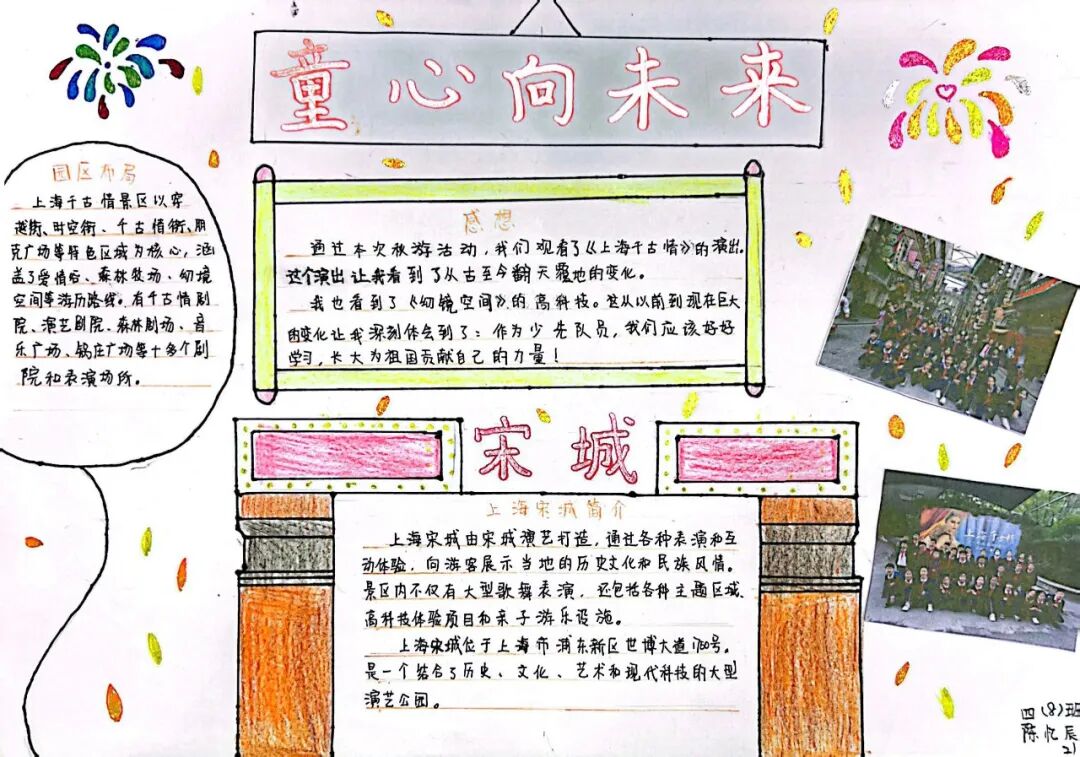 童心向未来
园区布局
上海千古情景区以穿
越街、时空街、千古情街、朋
克广场等特色区域为核心，涵
盖了爱情谷、森林牧场、幻境
空间等游历路线。有千古情剧
院、演艺剧院、森林剧场、音
乐广场、锅庄广场等十多个剧
院和表演场所。
感想
通过本次秋游活动，我们观看了《上海千古情》的演出。
这个演出让我看到了从古至今翻天覆地的变化。
我也看到了《幻镜空间》的高科技。这从以前到现在巨大
的变化让我深刻体会到了：作为少先队员，我们应该好好
学习，长大为祖国贡献自己的力量！
宋城
上海宋城简介
上海宋城由宋城演艺打造，通过各种表演和互
动体验，向游客展示当地的历史文化和民族风情。
景区内不仅有大型歌舞表演，还包括各种主题区域、
高科技体验项目和亲子游乐设施。
上海宋城位于上海市浦东新区世博大道1760号。
是一个结合了历史、文化、艺术和现代科技的大型
演艺公园。
四(8)班
陈忆辰
21